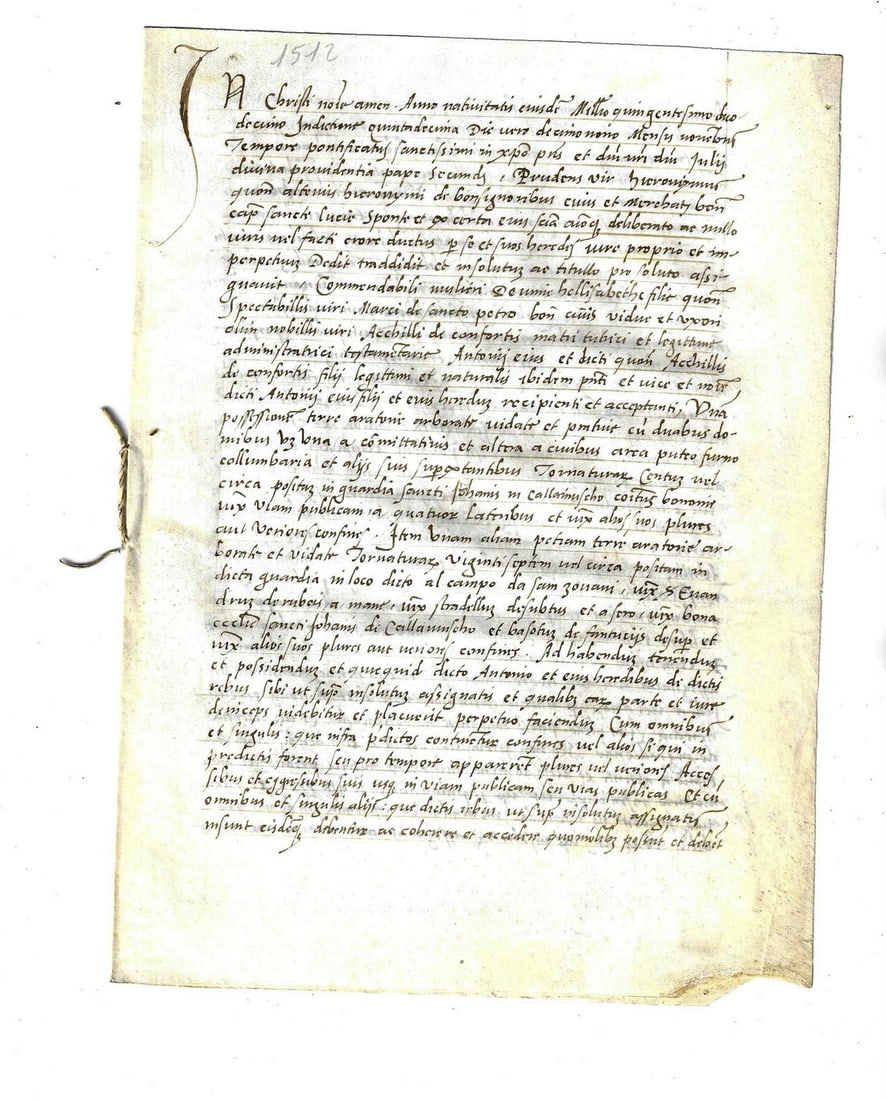 1512
IN Christi noīe amen. Anno nativitatis eiusdē Millō quingentesimo duo-
decimo Indictione quintadecima Die vero decimonono Mensis novēbris
Tempore pontificatus sanctissimi in xpō pris et dni nri dni Julij
divina providentia pape Secundi, Prudens vir hieronymus
quon alterius hieronymi de bonsignoribus civis et Merchatȝ bon
cap sancte Lucie Sponte et ex certa eius scia aīoqȝ deliberato ac nullo
iuris vel facti erore ductus p se et suos heredes iure proprio et im-
perpetuum Dedit traddidit et insolutum ac titullo pro soluto assi-
gnavit, Commendabili mulieri Domine hellisabethe filie quon
Spectabillis viri Marci de sancto petro bon civis vidue et uxori
olim nobillis viri Acchilli de confortis matri tutrici et legittime
administratrici testamentarie Antonij eius et dicti quon Acchillis
de confortis filij legittimi et naturalis ibidem pnti et vice et noīe
dicti Antonij eius filij et eius heredum recipienti et acceptanti, Unā
possessionem terre aratorie arborate vidate et prative cū duabus do-
mibus vȝ Una a cōmittativis et altera a civibus area puteo furno
collumbaria et alijs suis supextantibus Tornaturarum Centum vel
circa positam in guardia sancti Johanis in Callamoscho coītus bononie
iux viam publicam a quatuor lateribus et iux alios suos plures
aut veriores confines. Item Unam aliam petiam terre aratorie ar-
borate et vidate Tornaturarum Viginti septem vel circa positam in
dicta guardia in loco dicto al campo da san zoani, iux S Evan
drum de rubeis a mane, iux stradellum desubtus et a sero, iux bona
ecclie sancti Johanis de Callamoscho et basotum de fantucijs desup et
iux alios suos plures aut veriores confines. Ad habendum tenendum
et possidendum et quicquid dicto Antonio et eius heredibus de dictis
rebus sibi ut sup insolutum assignatis et qualibȝ earum parte et iure
deinceps videbitur et placuerit perpetuo faciendum Cum omnibus
et singulis: que infra pdictos continentur confines vel alios si qui in
predictis forent seu pro tempore apparerēt plures vel veriores Acces-
sibus et egressibus suis usqȝ in viam publicam seu vias publicas Et cū
omnibus et singulis alijs: que dictis rebus ut sup insolutum assignatis
insunt eisdēqȝ debentur ac coherere et accedere quomodolibȝ possunt et debēt